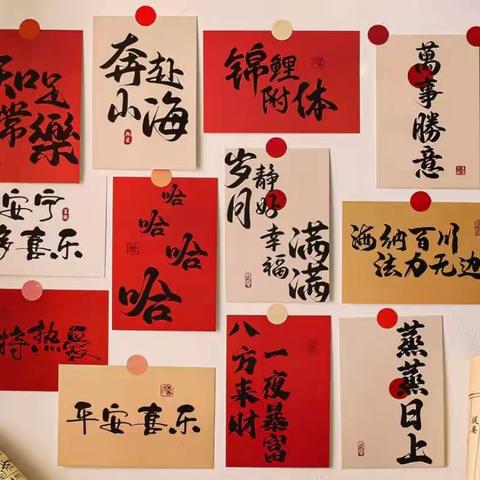 知足
常樂
奔赴
山海
锦鲤
附体
萬事勝意
安宁
多喜乐
哈哈哈哈
岁月
静好
幸福
满满
海纳百川
法力无边
持热爱
平安喜乐
一夜暴富
八方来财
蒸蒸日上